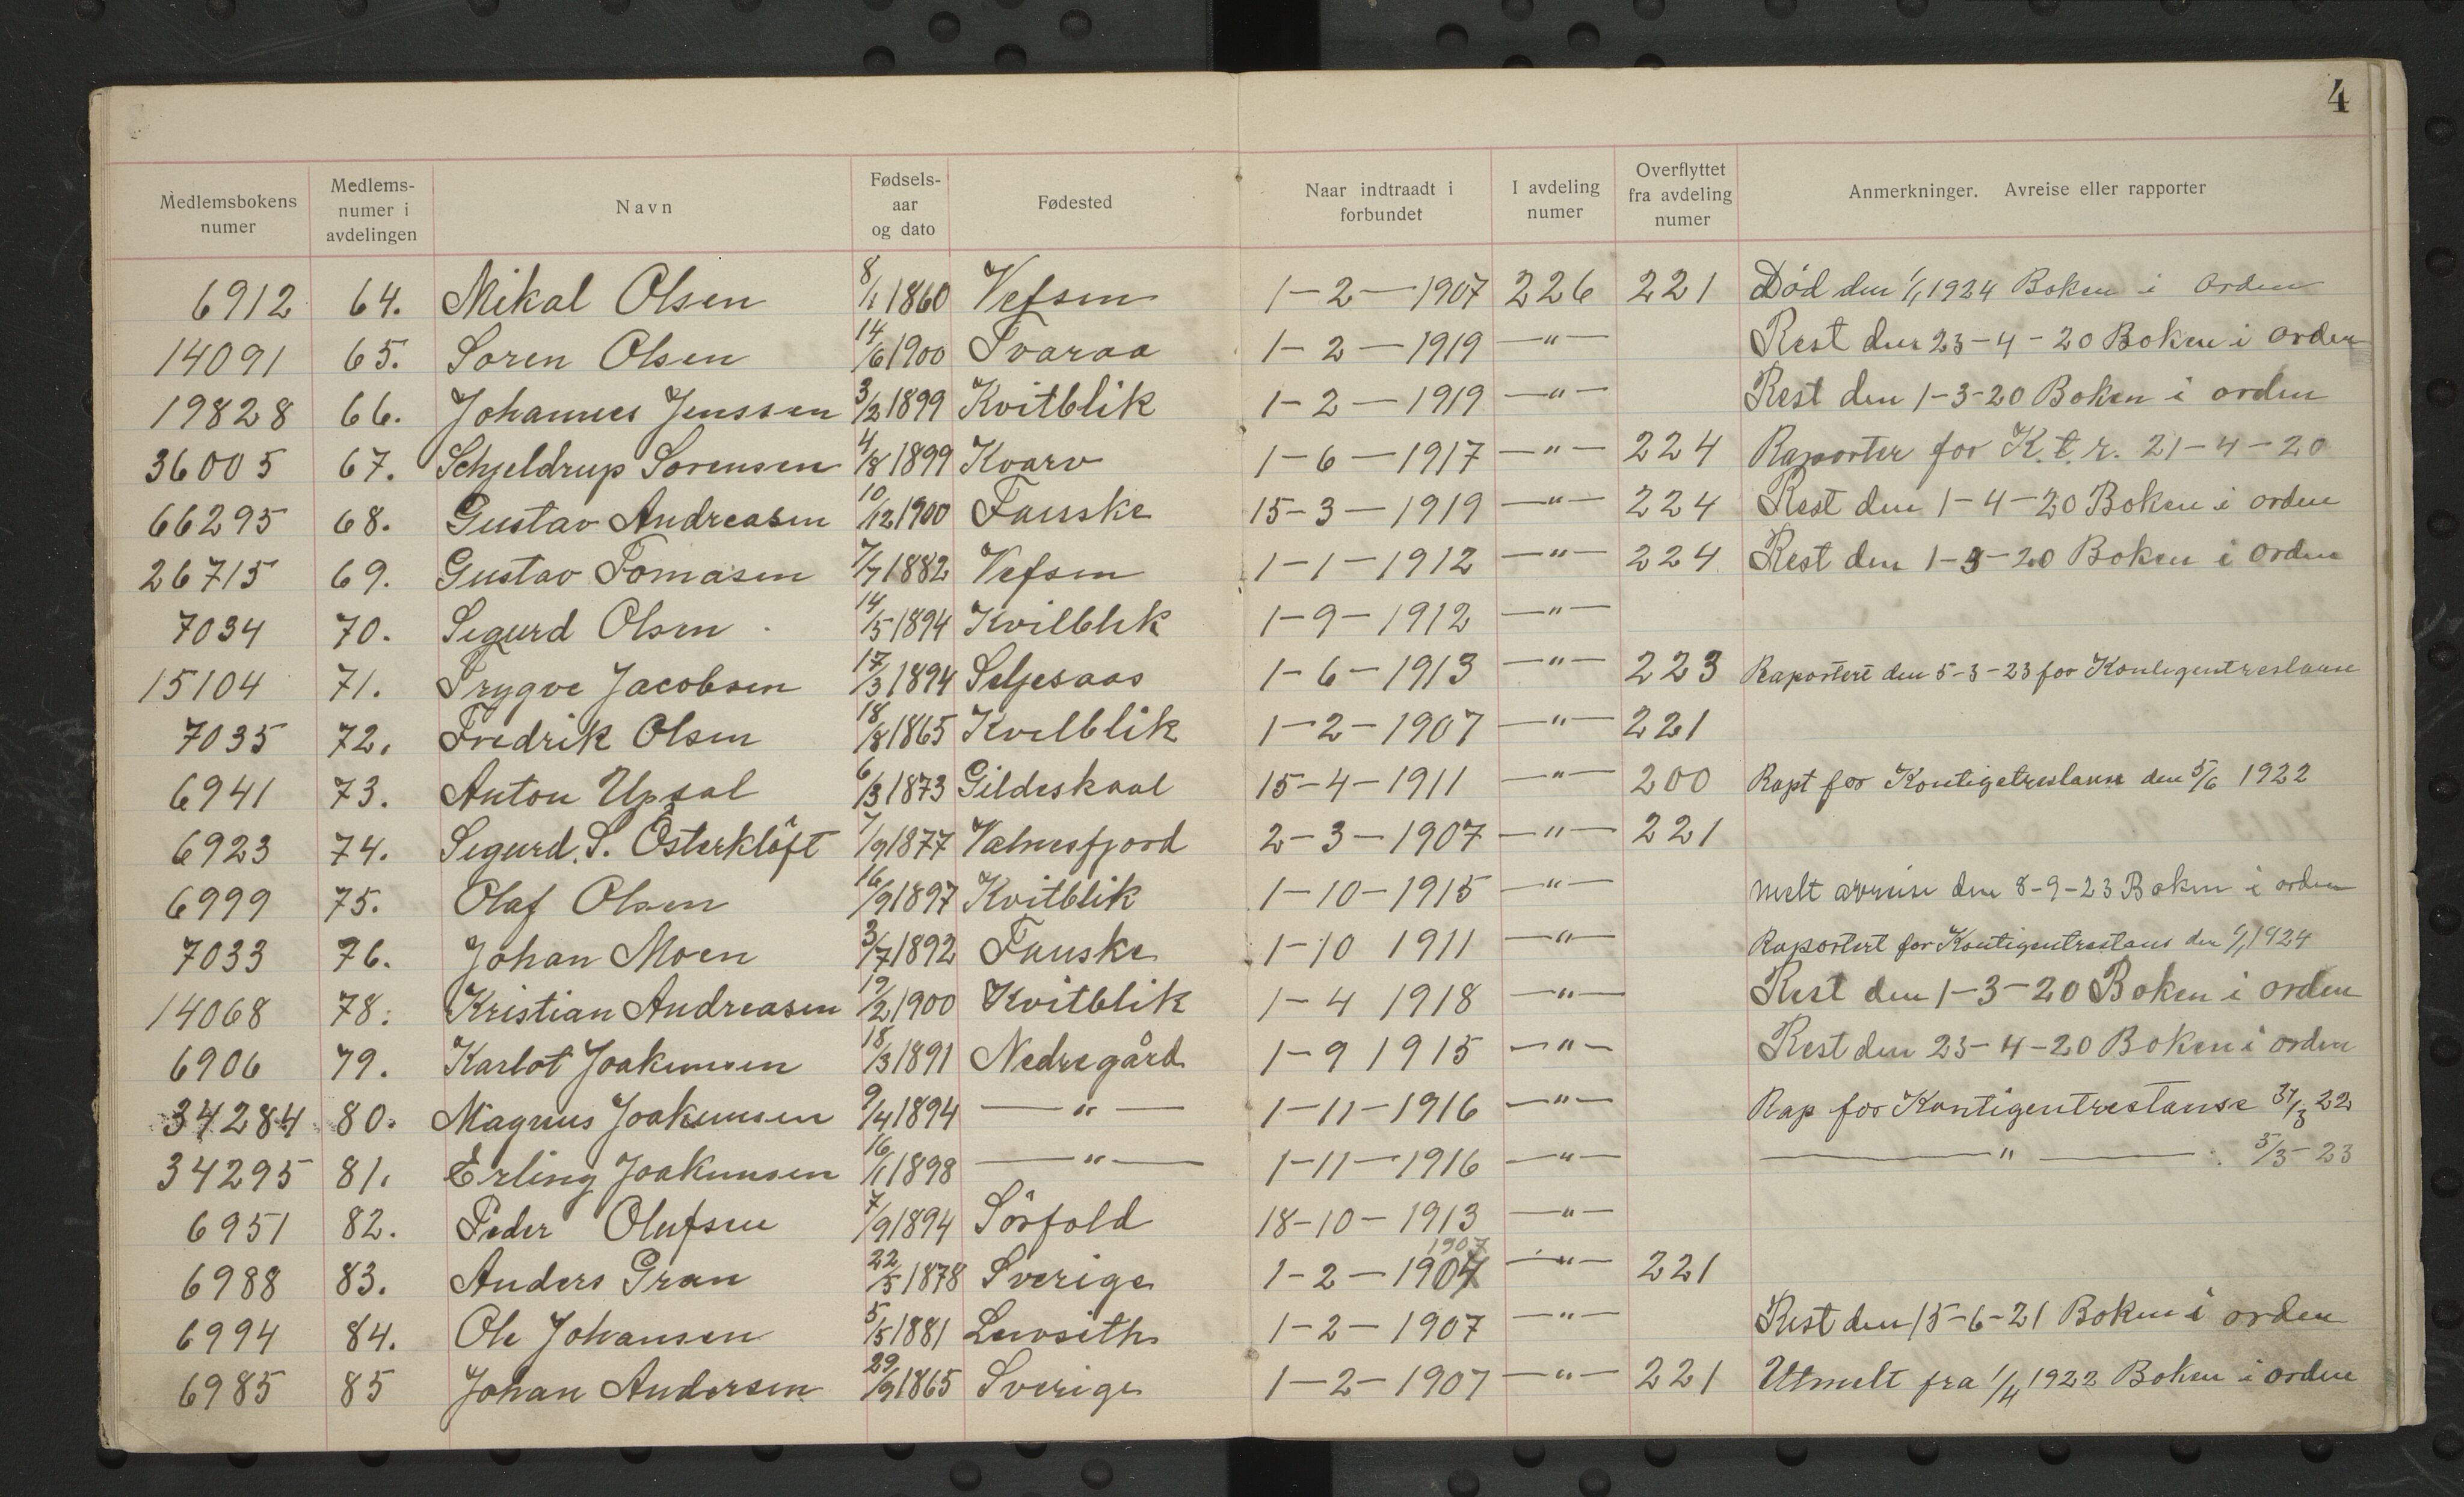 4
Medlemsbokens numer | Medlems-numer i avdelingen | Navn | Fødsels-aar og dato | Fødested | Naar indtraadt i forbundet | I avdeling numer | Overflyttet fra avdeling numer | Anmerkninger. Avreise eller rapporter
6912 64. Mikal Olsen 8/1 1860 Vefsen 1-2-1907 226 221 Død den 1/1 1924 Boken i orden
14091 65. Soren Olsen 14/6 1900 Tvaraa 1-2-1919 -"- Rest den 23-4-20 Boken i orden
19828 66. Johannes Jenssen 3/2 1899 Kvitblik 1-2-1919 -"- Rest den 1-3-20 Boken i orden
36005 67. Schjeldrup Sorensen 4/8 1899 Kvarv 1-6-1917 -"- 224 Raporter for K.t.r. 21-4-20
66295 68. Gustav Andreasen 10/12 1900 Fauske 15-3-1919 -"- 224 Rest den 1-4-20 Boken i orden
26715 69. Gustav Tomasen 7/7 1882 Vefsen 1-1-1912 -"- 224 Rest den 1-3-20 Boken i orden
7034 70. Sigurd Olsen 14/5 1894 Kvitblik 1-9-1912 -"-
15104 71. Trygve Jacobsen 17/3 1894 Seljesaas 1-6-1913 -"- 223 Raportert den 5-3-23 for
7035 72. Fredrik Olsen 18/8 1865 Kvitblik 1-2-1907 -"- 221
6941 73. Anton Upsal 6/3 1873 Gildeskaal 15-4-1911 -"- 200 Rapt for Kontigetrestanse den 5/6 1922
6923 74. Sigurd. S. Österklöft 7/9 1877 Valnesfjord 2-3-1907 -"- 221
6999 75. Olaf Olsen 16/9 1897 Kvitblik 1-10-1915 -"- melt avreise den 8-9-23 Boken i orden
7033 76. Johan Moen 3/7 1892 Fauske 1-10 1911 -"- Raportert for Kontigentrestans den 1924
14068 78. Kristian Andreasen 19/2 1900 Kvitblik 1-4 1918 -"- Rest den 1-3-20 Boken i orden
6906 79. Karlot Joakimsen 18/3 1891 Nedregård 1-9 1915 -"- Rest den 23-4-20 Boken i orden
34284 80. Magnus Joakimsen 9/4 1894 -"- 1-11-1916 -"- Rap for Kontigentrestanse 31/3 22
34295 81. Erling Joakimsen 16/1 1898 -"- 1-11-1916 -"- -"- 5/3-23
6951 82. Peder Olufsen 7/9 1894 Sörfold 18-10-1913 -"-
1907
6988 83. Anders Gran 22/5 1878 Sverige 1-2-1904 -"- 221
6994 84. Ole Johansen 5/5 1881 1-2-1907 -"- Rest den 15-6-21 Boken i orden
6985 85 Johan Andersen 29/9 1865 Sverige 1-2-1907 -"- 221 Utmelt fra 1/4 1922 Boken i orden